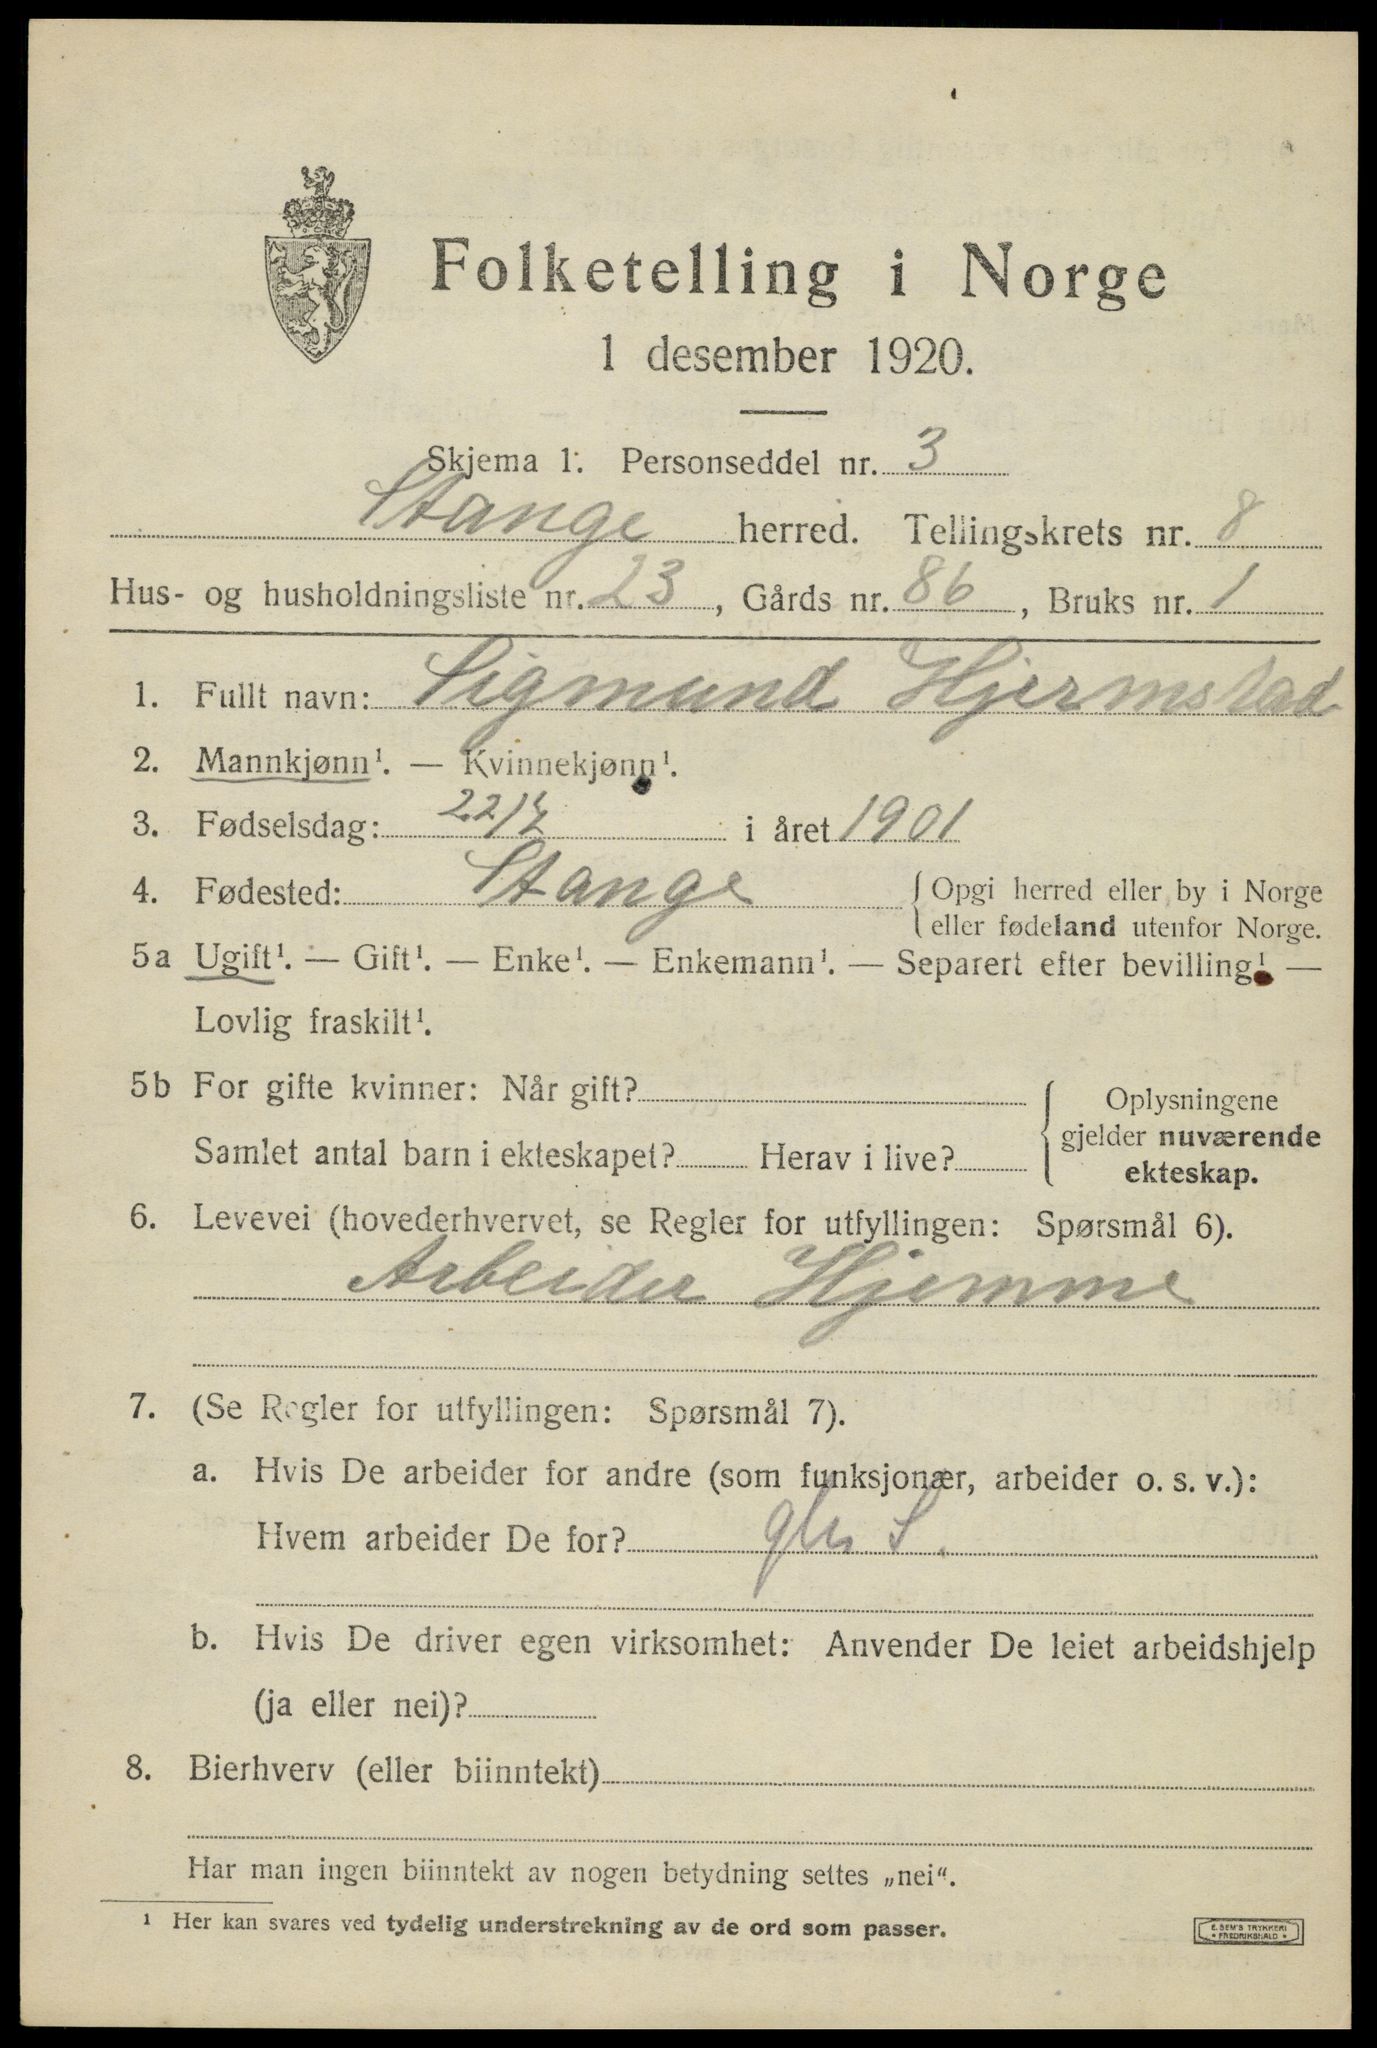 Folketelling i Norge
1 desember 1920.
Skjema 1. Personseddel nr. 3
Stange herred. Tellingskrets nr. 8
Hus- og husholdningsliste nr. 23, Gårds nr. 86, Bruks nr. 1
1. Fullt navn: Sigmund Hjermstad
2. Mannkjønn¹. — Kvinnekjønn¹.
3. Fødselsdag: 22/ i året 1901
4. Fødested: Stange { Opgi herred eller by i Norge
eller fødeland utenfor Norge.
5a Ugift¹. — Gift¹. — Enke¹. — Enkemann¹. — Separert efter bevilling¹ —
Lovlig fraskilt¹.
5b For gifte kvinner: Når gift?
Samlet antal barn i ekteskapet? Herav i live?
Oplysningene
gjelder nuværende
ekteskap.
6. Levevei (hovederhvervet, se Regler for utfyllingen: Spørsmål 6).
Arbeider Hjemme
7. (Se Regler for utfyllingen: Spørsmål 7).
a. Hvis De arbeider for andre (som funksjonær, arbeider o. s. v.):
Hvem arbeider De for?
b. Hvis De driver egen virksomhet: Anvender De leiet arbeidshjelp
(ja eller nei)?
8. Bierhverv (eller biinntekt)
Har man ingen biinntekt av nogen betydning settes „nei“.
¹ Her kan svares ved tydelig understrekning av de ord som passer.
E. SEM'S TRYKKERI
* FREDRIKSHALD *